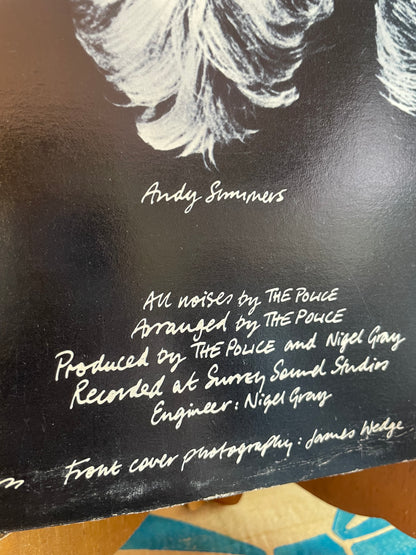 Andy Summers
All noises by THE POLICE
Arranged by THE POLICE
Produced by THE POLICE and Nigel Gray
Recorded at Surrey Sound Studios
Engineer: Nigel Gray
Front cover photography: James Wedge